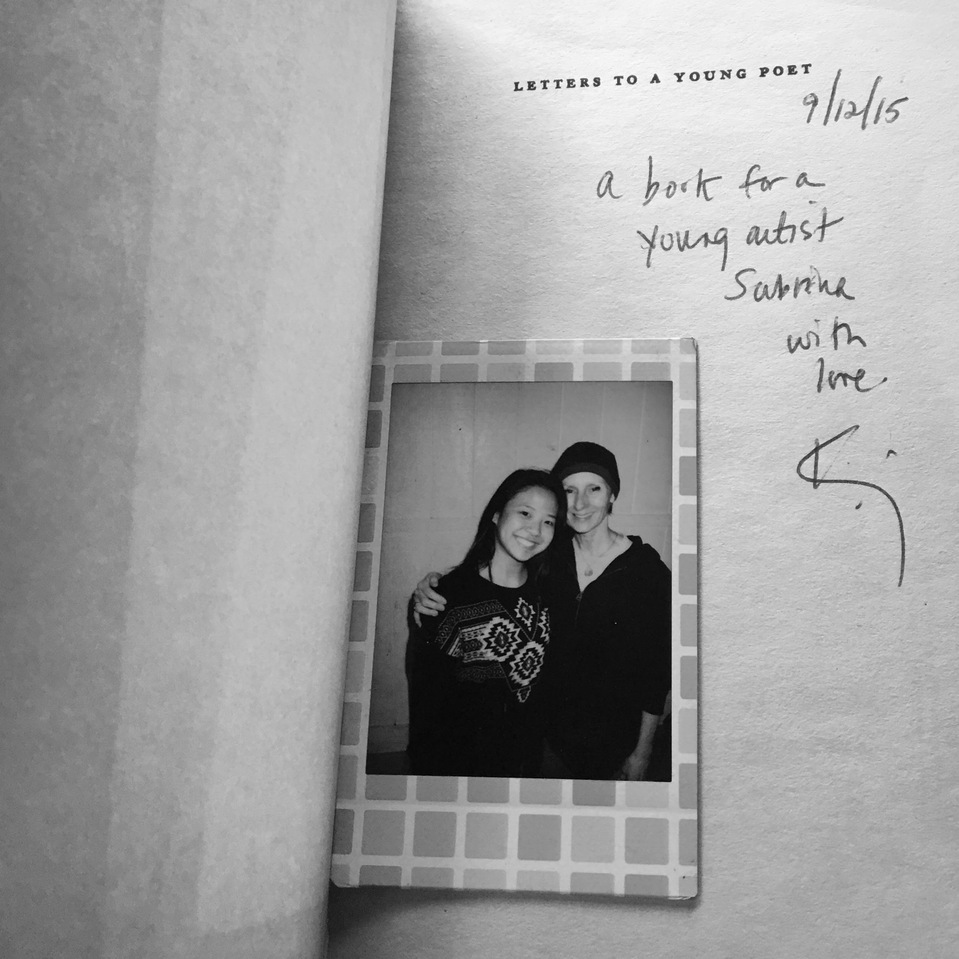 LETTERS TO A YOUNG POET
9/12/15
a book for a
young artist
Sabrina
with
love